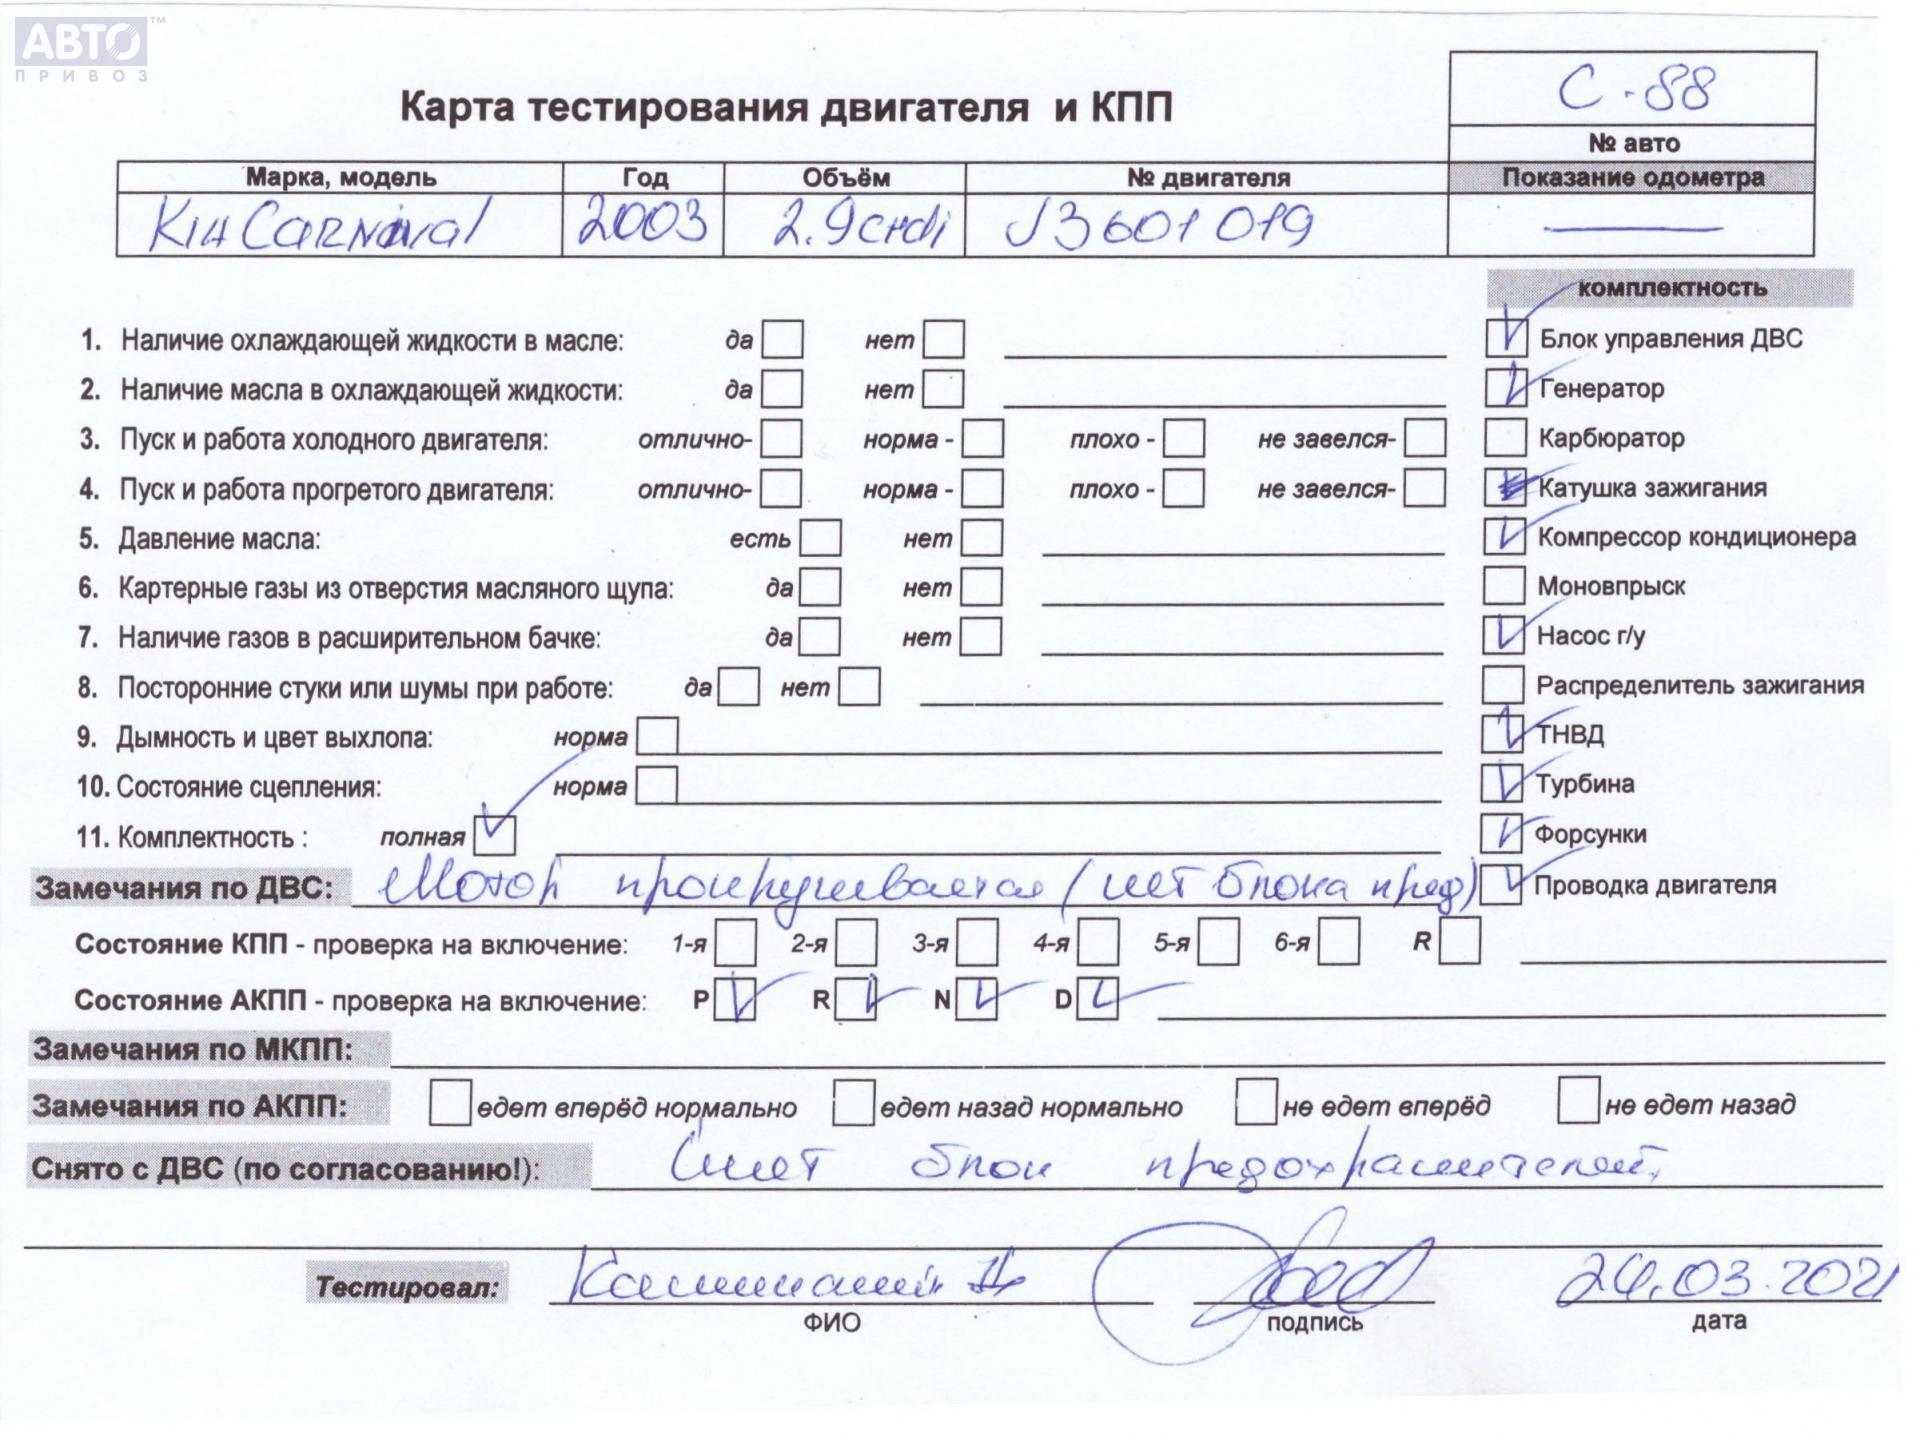 АВТО™
ПРИВОЗ
С-88
Карта тестирования двигателя и КПП
№ авто
Марка, модель Год Объём № двигателя Показание одометра
Kia Carnival 2003 2.9 crdi J3601019 —
комплектность
1. Наличие охлаждающей жидкости в масле: да нет Блок управления ДВС
2. Наличие масла в охлаждающей жидкости: да нет Генератор
3. Пуск и работа холодного двигателя: отлично- норма - плохо - не завелся- Карбюратор
4. Пуск и работа прогретого двигателя: отлично- норма - плохо - не завелся- Катушка зажигания
5. Давление масла: есть нет Компрессор кондиционера
6. Картерные газы из отверстия масляного щупа: да нет Моновпрыск
7. Наличие газов в расширительном бачке: да нет Насос г/у
8. Посторонние стуки или шумы при работе: да нет Распределитель зажигания
9. Дымность и цвет выхлопа: норма ТНВД
10. Состояние сцепления: норма Турбина
11. Комплектность : полная Форсунки
Замечания по ДВС: Мотор прокручивается (нет блока пред) Проводка двигателя
Состояние КПП - проверка на включение: 1-я 2-я 3-я 4-я 5-я 6-я R
Состояние АКПП - проверка на включение: P R N D
Замечания по МКПП:
Замечания по АКПП: едет вперёд нормально едет назад нормально не едет вперёд не едет назад
Снято с ДВС (по согласованию!): Снят блок предохранителей
Тестировал: 24.03.2021
ФИО подпись дата